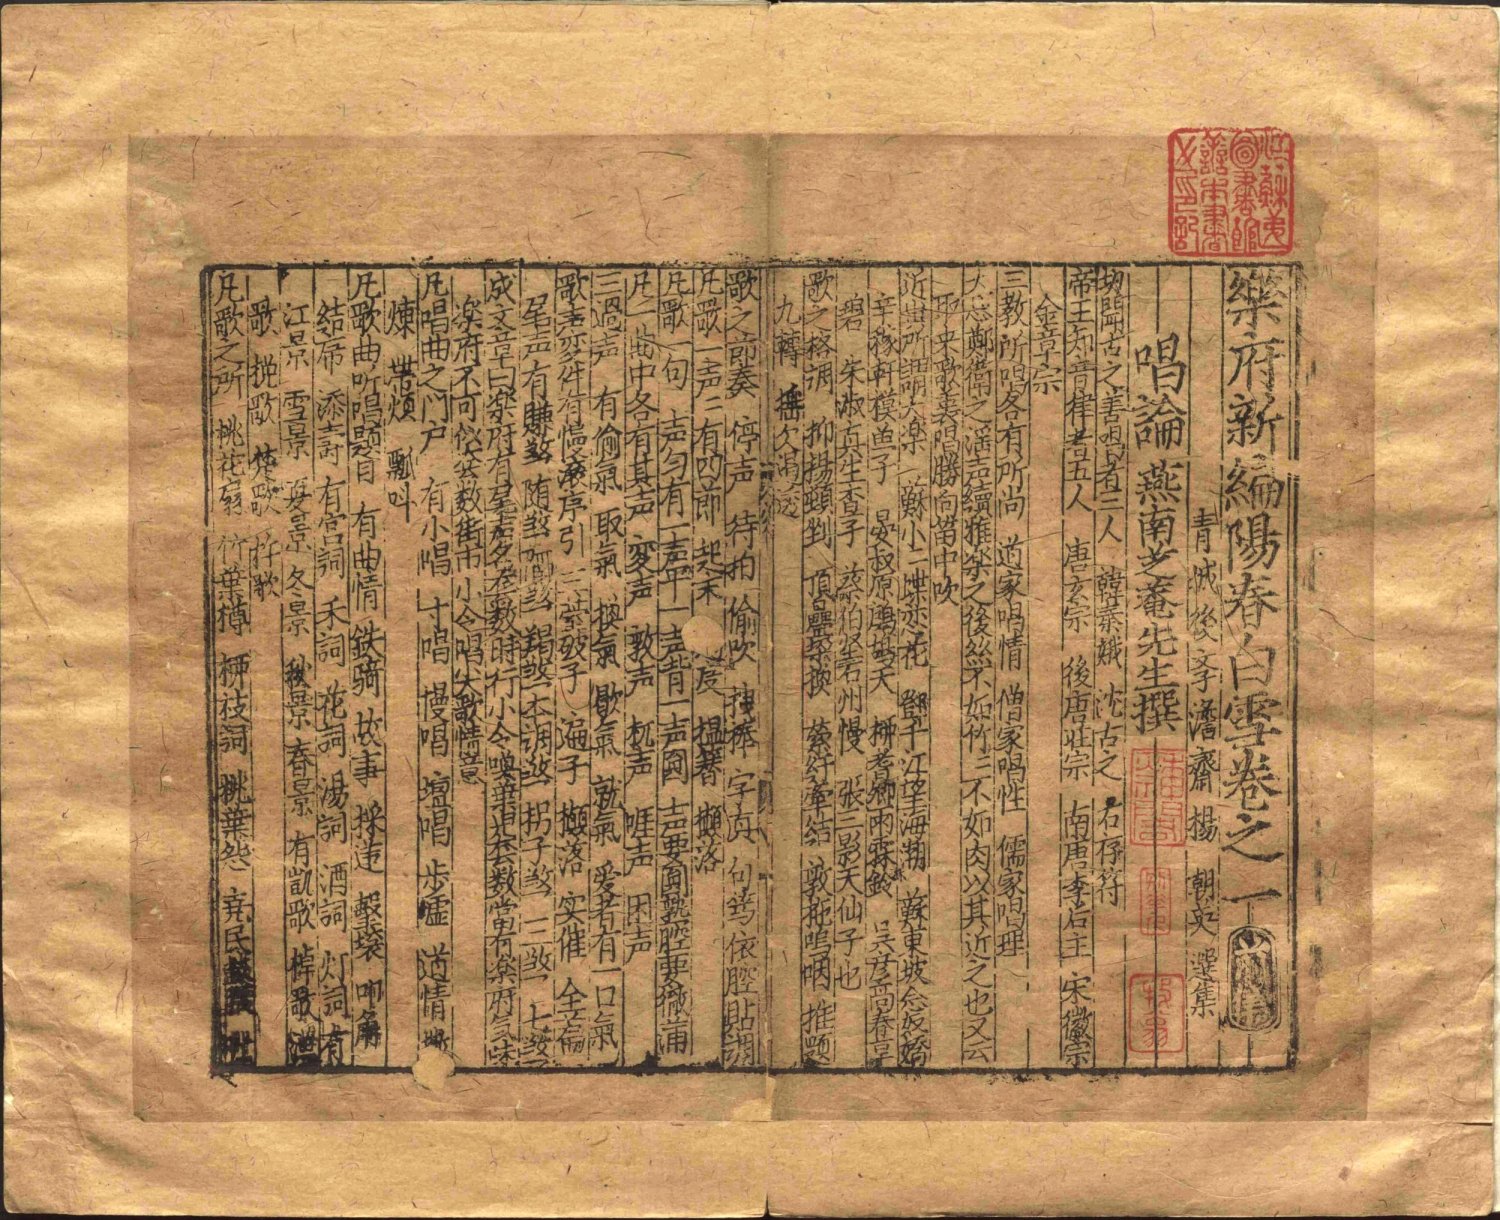 樂府新編陽春白雪卷之一
青城後李澹齋楊 朝英 選集
唱論 燕南芝菴先生撰
切聞古之善唱者三人 韓秦娥 沈古之 石存符
帝王知音律者五人 唐玄宗 後唐庄宗 南唐李后主 宋徽宗
金章宗
三教所唱各有所尚 道家唱情 僧家唱性 儒家唱理
大忌鄭衛之滛声續雅楽之後絲不如竹竹不如肉以其近之也又云
取來歌裏唱勝向笛中吹
近丗所謂大楽 蘇小小蝶恋花 鄧千江望海潮 蘇東坡念奴嬌
辛稼軒摸魚子 晏叔原鷓鴣天 柳耆卿雨霖鈴 吴彦高春草
碧 朱淑真生查子 蔡伯堅石州慢 張三影天仙子也
歌之格調 抑揚頓剉 頂疊垜換 萦纡牽结 敦拖嗚咽 推題
九轉 摇欠遏透
歌之節奏 停声 待拍 偷吹 拽棒 字真 句篤 依腔 貼調
凡歌一声声有四節 起末 度 揾簪 攧落
凡歌一句 声匀有一声平一声背一声圓 声要圓熟腔要徹滿
凡一曲中各有其声 変声 敦声 杌声 啀声 困声
三過声 有偷氣 取氣 換氣 歇氣 就氣 愛者有一口氣
歌声変件有慢 滚 序 引 三䑓 破子 遍子 攧落 实催 全篇
尾声有賺煞 随煞 隔煞 羯煞 本調煞 拐子煞 三煞 七煞
成文章曰楽府有尾声名套数時行小令喚葉兒套数當有楽府氣味
楽府不可似套数街市小令唱尖歌情意
凡唱曲之门户 有小唱 寸唱 慢唱 壇唱 步虛 道情 撒
煉 带煩 瓢叫
凡歌曲所唱題目 有曲情 鉄騎 故事 採蓮 擊壌 叩角
结席 添壽 有宫詞 禾詞 花詞 湯詞 酒詞 灯詞 有
江景 雪景 夏景 冬景 秋景 春景 有凱歌 棹歌 漁
歌 挽歌 楚歌 杵歌
凡歌之所 桃花扇 竹葉樽 柳枝詞 桃葉怨 尭民